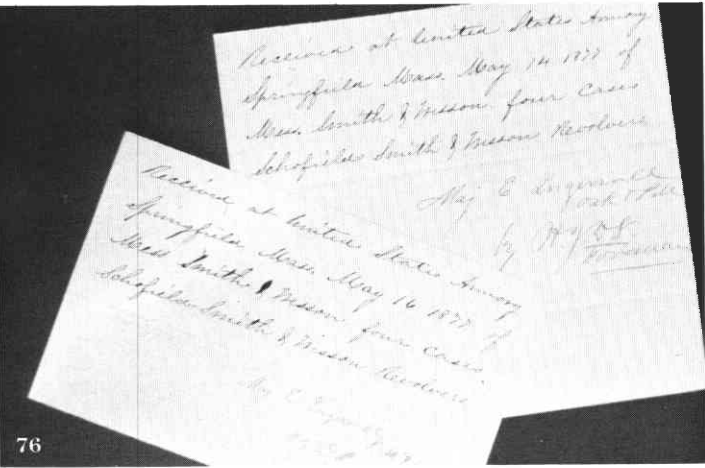 Received at United States Armory
Springfield Mass. May 14 1877 of
Mess. Smith & Wesson four cases
Schofields Smith & Wesson Revolvers
Maj E Ingersoll
by
Foreman
Received at United States Armory
Springfield Mass. May 16 1877 of
Mess Smith & Wesson four cases
Schofields Smith & Wesson Revolvers
76